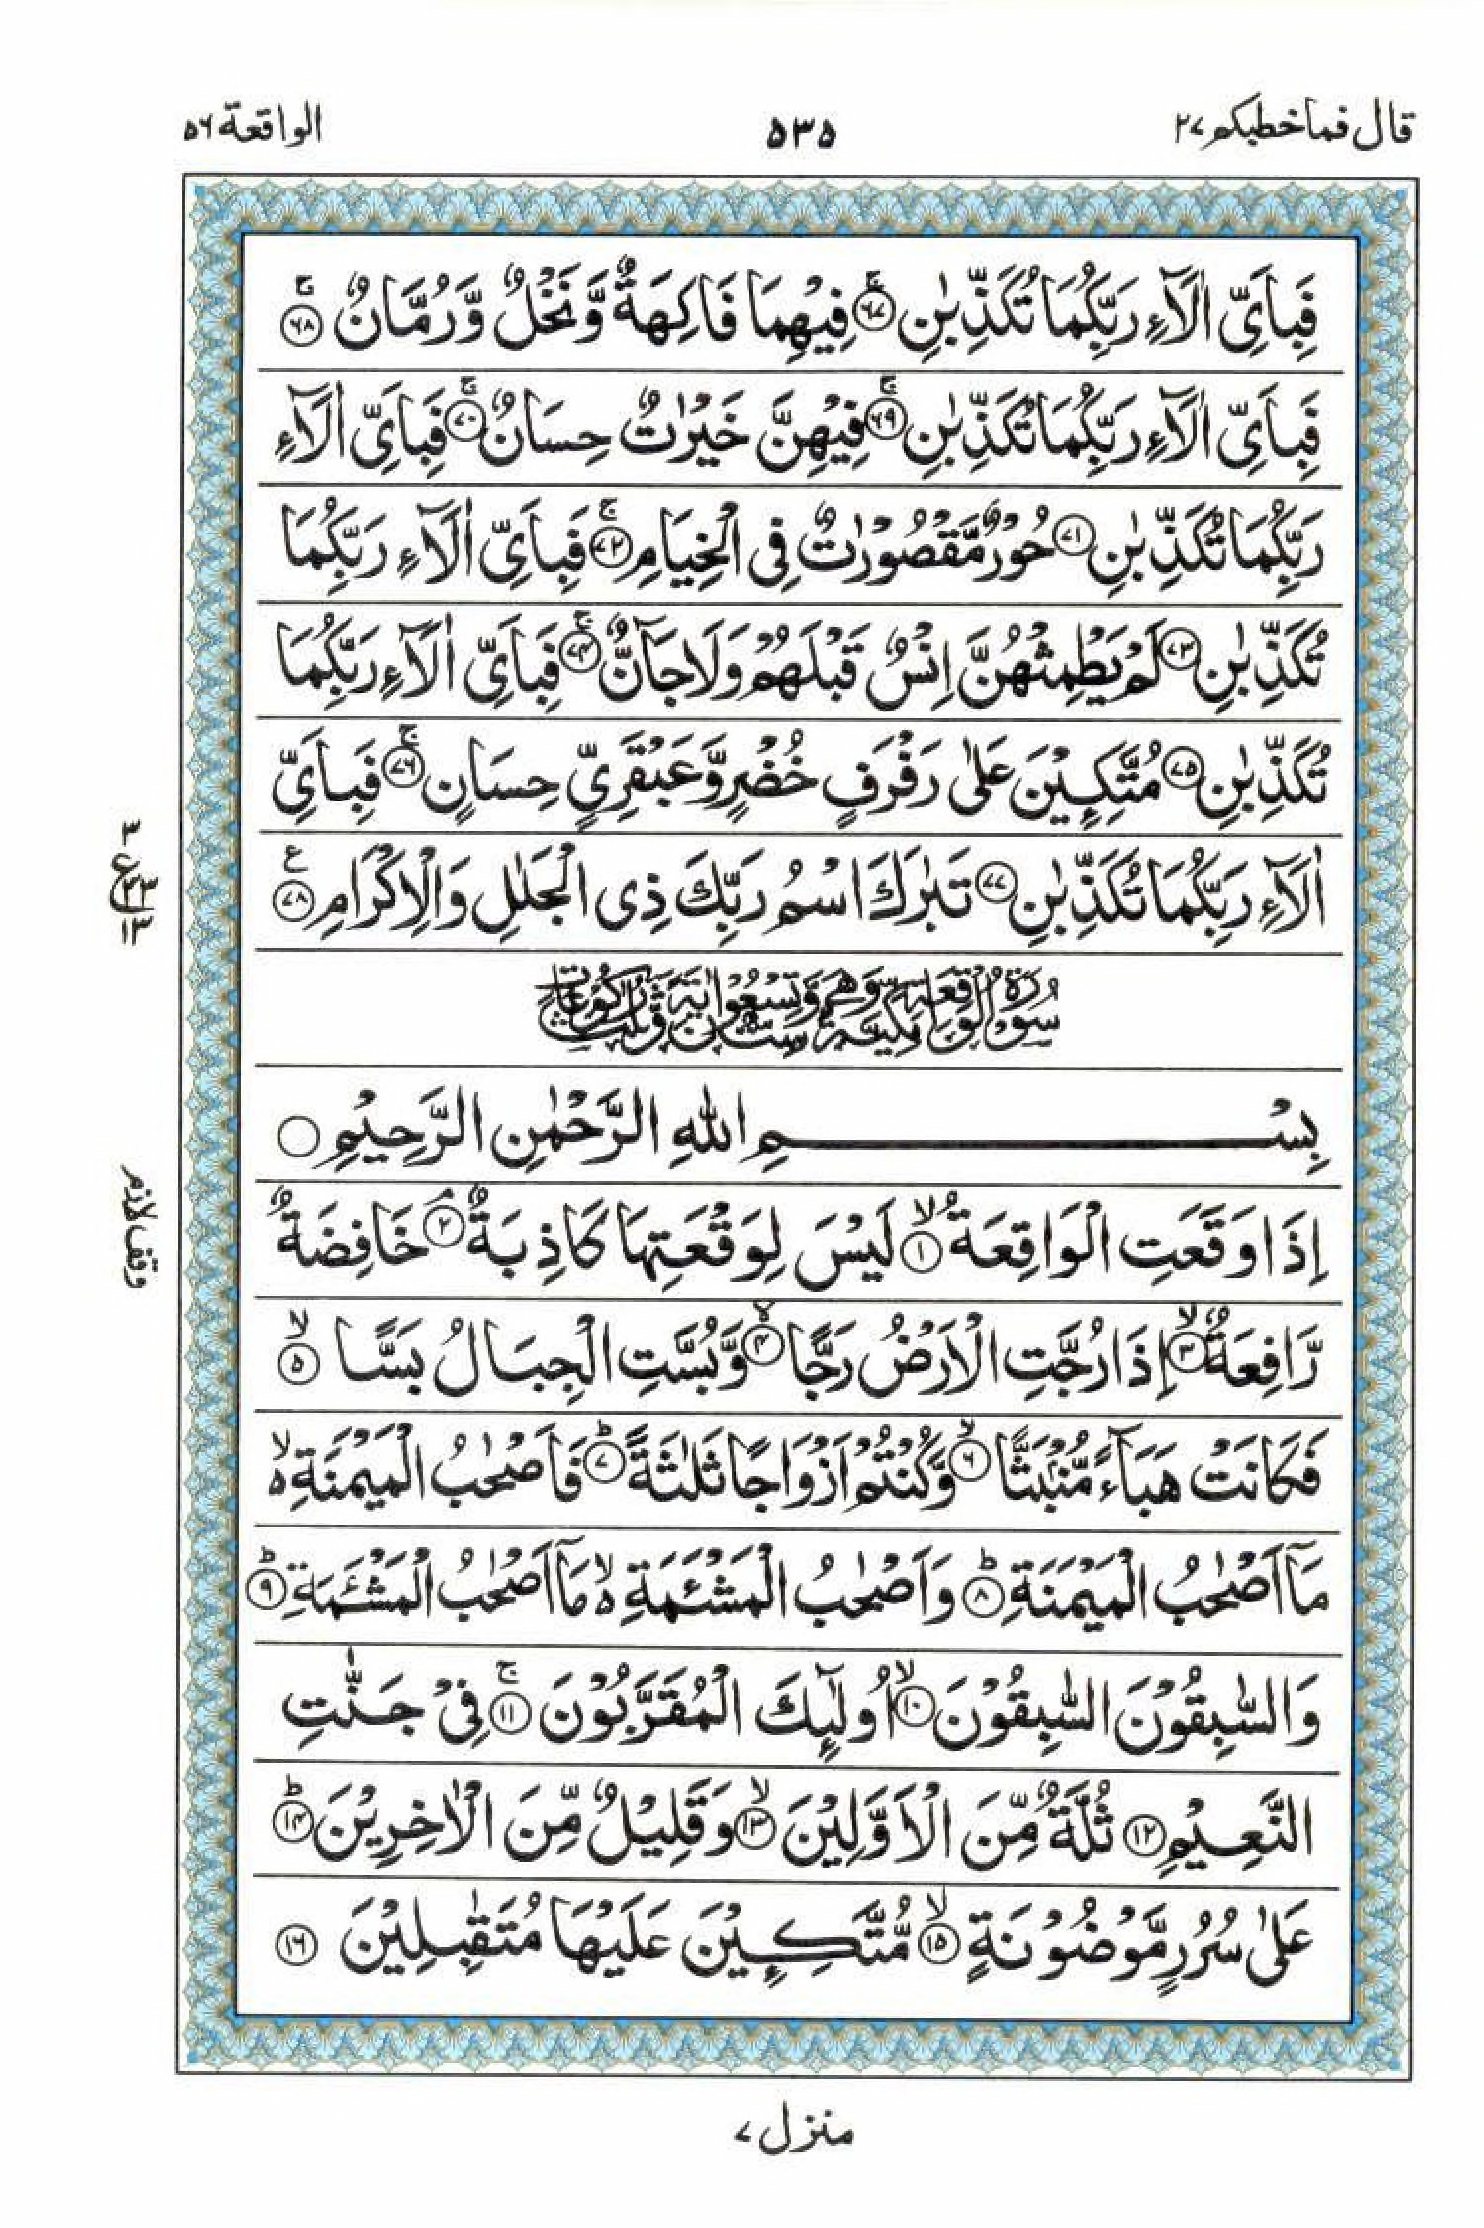 قال فماخطبكم ٢٧ ٥٣٥ الواقعة ٥٦
فَبِاَىِّ اٰلَآءِ رَبِّكُمَا تُكَذِّبٰنِ ۚ‏﴿۶۷﴾ فِيْهِمَا فَاكِهَةٌ وَّنَخْلٌ وَّرُمَّانٌ ۚ‏﴿۶۸﴾
فَبِاَىِّ اٰلَآءِ رَبِّكُمَا تُكَذِّبٰنِ ۚ‏﴿۶۹﴾ فِيْهِنَّ خَيْرٰتٌ حِسَانٌ ۚ‏﴿۷۰﴾ فَبِاَىِّ اٰلَآءِ
رَبِّكُمَا تُكَذِّبٰنِ ‏﴿۷۱﴾ حُوْرٌ مَّقْصُوْرٰتٌ فِى الْخِيَامِ ۚ‏﴿۷۲﴾ فَبِاَىِّ اٰلَآءِ رَبِّكُمَا
تُكَذِّبٰنِ ‏﴿۷۳﴾ لَمْ يَطْمِثْهُنَّ اِنْسٌ قَبْلَهُمْ وَلَا جَآنٌّ ۚ‏﴿۷۴﴾ فَبِاَىِّ اٰلَآءِ رَبِّكُمَا
تُكَذِّبٰنِ ‏﴿۷۵﴾ مُتَّكِـِٕيْنَ عَلٰى رَفْرَفٍ خُضْرٍ وَّعَبْقَرِىٍّ حِسَانٍ ۚ‏﴿۷۶﴾ فَبِاَىِّ
اٰلَآءِ رَبِّكُمَا تُكَذِّبٰنِ ‏﴿۷۷﴾ تَبٰرَكَ اسْمُ رَبِّكَ ذِى الْجَلٰلِ وَالْاِكْرَامِ ‏﴿۷۸﴾ ع
٣
ع ٣٣
١٣
سُوْرَةُ الْوَاقِعَةِ مَكِّيَّةٌ وَّهِىَ سِتٌّ وَّتِسْعُوْنَ اٰيَةً وَّثَلٰثُ رُكُوْعَاتٍ
بِسْمِ اللهِ الرَّحْمٰنِ الرَّحِيْمِ ○
اِذَا وَقَعَتِ الْوَاقِعَةُ ۙ‏﴿۱﴾ لَيْسَ لِوَقْعَتِهَا كَاذِبَةٌ ۘ‏﴿۲﴾ خَافِضَةٌ
وقف لازم
رَّافِعَةٌ ۙ‏﴿۳﴾ اِذَا رُجَّتِ الْاَرْضُ رَجًّا ۙ‏﴿۴﴾ وَّبُسَّتِ الْجِبَالُ بَسًّا ۙ‏﴿۵﴾
فَكَانَتْ هَبَآءً مُّنْۢبَثًّا ۙ‏﴿۶﴾ وَّكُنْتُمْ اَزْوَاجًا ثَلٰثَةً ؕ‏﴿۷﴾ فَاَصْحٰبُ الْمَيْمَنَةِ ۙ۬
مَاۤ اَصْحٰبُ الْمَيْمَنَةِ ؕ‏﴿۸﴾ وَاَصْحٰبُ الْمَشْـَٔمَةِ ۙ۬ مَاۤ اَصْحٰبُ الْمَشْـَٔمَةِ ؕ‏﴿۹﴾
وَالسّٰبِقُوْنَ السّٰبِقُوْنَ ۙ‏﴿۱۰﴾ اُولٰٓئِكَ الْمُقَرَّبُوْنَ ۚ‏﴿۱۱﴾ فِىْ جَنّٰتِ
النَّعِيْمِ ‏﴿۱۲﴾ ثُلَّةٌ مِّنَ الْاَوَّلِيْنَ ۙ‏﴿۱۳﴾ وَقَلِيْلٌ مِّنَ الْاٰخِرِيْنَ ؕ‏﴿۱۴﴾
عَلٰى سُرُرٍ مَّوْضُوْنَةٍ ۙ‏﴿۱۵﴾ مُّتَّكِـِٕيْنَ عَلَيْهَا مُتَقٰبِلِيْنَ ‏﴿۱۶﴾
منزل ٧